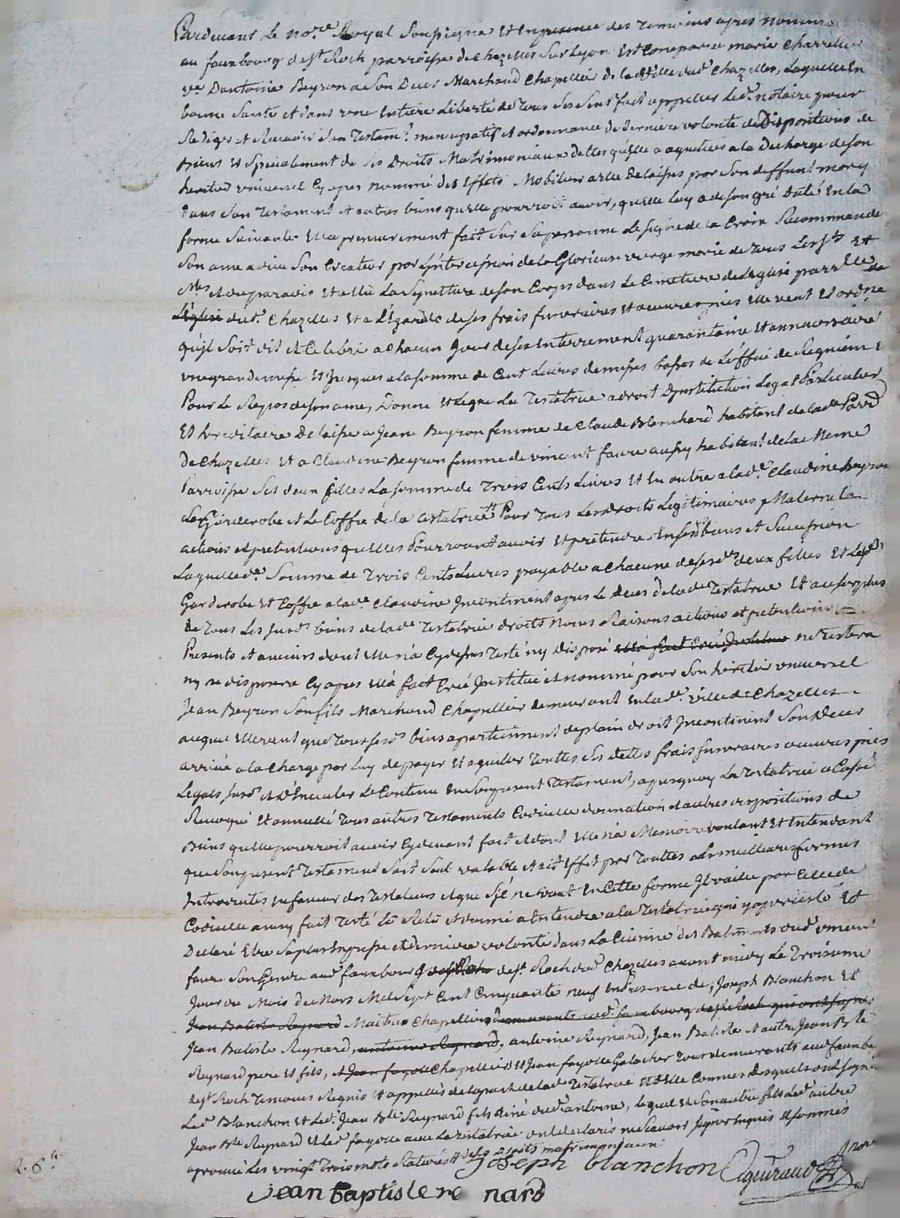 Pardevant Le no.re Royal Soussigne Et En presence des Temoins apres nommes
au fauxbourg de st Roch parroisse de Chazelles Sur Lyon Est Comparue marie Charretier
ve Dantoine Beyron a Son Deces Marchand Chapellier de la de Ville de Chazelles, Laquelle En
bonne Sante et dans une Entiere Liberté de Tous Ses Sens fait appeller Led. notaire pour
Rediger et Recevoir Son Testamt. nuncupatif et ordonnance de derniere volonté de Dispositions de
biens et Specialement de Ses Droits Matrimoniaux dettes quelle a aquittées a la Decharge de son
heritier universel Cy apres nommé des Effets Mobiliers a Elle Delaissés par Son deffunt mary
dans Son Testament et autres biens quelle pourroit avoir, quelle Luy a de son gré Dicté En la
forme Suivante Elle premierement fait Sur Sa personne Le Signe de la Croix Recommandé
Son ame a dieu Son Createur par L'intercession de la Glorieuse vierge marie de Tous Les Sts Et
Stes du paradis Et Eslu La Sepulture de son Corps dans Le Cimetiere de L'Eglise parr.elle de
L'Eglise dud. Chazelles Et a L'Egard de ses frais funeraires et oeuvres pies Elle veut Et ordne
qu'il Soit dit et Celebré a Chacun Jour de Ses Enterrement quarantaine Et anniversaire
une grande messe Et Jusques a la Somme de Cent Livres de messes basses de L'office de Requiem
Pour Le Repos de son ame, Donne Et Legue La Testatrice a droit D'institution Legat Particulier
Et hereditaire Delaisse a Jeane Beyron femme de Claude Blanchard habitant de lade Parr.
De Chazelles Et a Claudine Beyron femme de vincent faure aussy habitant de la Meme
Parroisse Ses deux filles La Somme de Trois Cents Livres Et En outre a lade. Claudine Beyron
La Garderobe et Le Coffre de la testatrice Pour Tous Leurs droits Legitimaires Maternels
actions et pretentions quelles Pourroient avoir Et pretendre En Ses biens Et Succession
Laquelle de. Somme de Trois Cents Livres payable a Chacune de sesd. deux filles Et Lesd.
Garderobe Et Coffre a lade Claudine Incontinent apres Le deces de lade Testatrice Et au Surplus
De Tous Les Susd. biens de lade Testatrice droits noms Raisons actions et pretentions
Presents Et avenirs dont Elle n'a Cy dessus Testé ny disposé Elle fait Créé Institue ne Testera
ny ne disposera Cy apres Elle a fait Créé Institué et nommé pour Son heritier universel
Jean Beyron Son fils Marchand Chapellier demeurant En lade. ville de Chazelles
auquel Elle veut que Tous Sesd. biens apartiennent de plain droit Incontinent Son deces
arrivé a la Charge par Luy de payer Et aquitter Touttes Ses dettes frais funeraires oeuvres pies
Legats Susd. et d'Executer Le Contenu En Son present Testament, au moyen La Testatrice a Cassé
Revoqué Et annullé Tous autres Testaments Codicilles donnation et autres dispositions de
Biens quelle pourroit avoir Cy devant fait Et dont Elle n'a Memoire voulant Et Entendant
que Son present Testament Soit Seul valable Et ait Effet par Touttes Les meilleures formes
Introduites En faveur des Testateurs Et que S'il ne vaut En Cette forme Il vaille par Celle de
Codicille ainsy fait Testé Lu Relu Et donné a Entendre a la Testatrice qui y a persisté Et
Declaré Etre Sa plus Expresse et derniere volonté dans La Cuisine des Batiments dud. vincent
faure Son Gendre aud. fauxbourg de st Roch dud. Chazelles avant midy Le Troisieme
Jour du Mois de Mars Mil Sept Cent Cinquante neuf En presence de, Joseph Blanchon Et
Jean Batiste Reynard Maitres Chapelliers demeurants aud. fauxbourg de st Roch qui ont Signé
Jean Batiste Reynard, antoine Reynard, antoine Reynard, Jean Batiste et autre Jean Bte
Reynard pere Et fils, et Jean fayolle Chapelliers Et Jean fayolle Galocher Tous demeurants aud. fauxbg
de st Roch Temoins Requis Et appellés de la part de lade Testatrice Et d'Elle Connus desquels ont Signé
Led. Blanchon et Led. Jean Bte Reynard fils ainé dud. antoine, lequel et Son autre fils Led. autre
Jean Bte Reynard et led. fayolle avec la testatrice ont declaré ne Scavoir Signer Enquis Et Sommés
aprouvé Les vingt Trois mots Raturés et des droits matrimoniaux
Joseph blanchon
Jean baptiste re nard